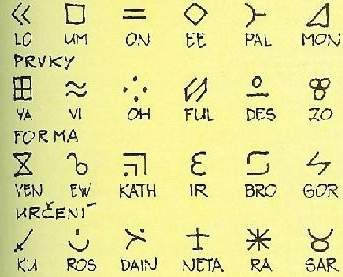 LO UM ON EE PAL MON
PRVKY
YA VI OH FUL DES ZO
FORMA
VEN EW KATH IR BRO GOR
URČENÍ
KU ROS DAIN NETA RA SAR